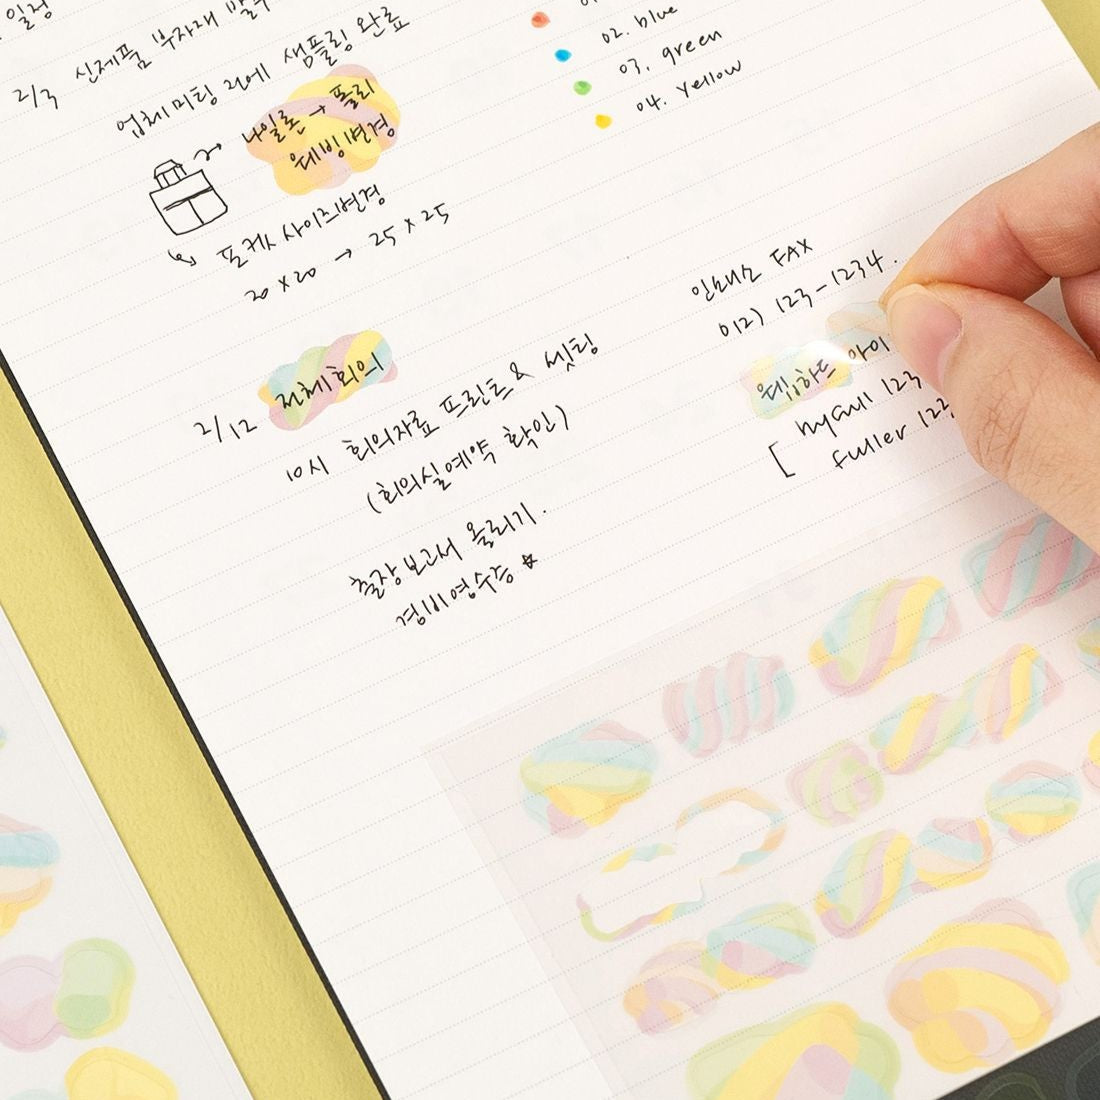 일정
2/3 신제품 부자재 발주
업체미팅 전에 샘플링 완료
나일론 → 폴리
웨빙변경
포켓 사이즈변경
20 x 20 → 25 x 25
2/12 전체회의
10시 회의자료 프린트 & 셋팅
(회의실예약 확인)
출장보고서 올리기.
경비영수증 ☆
01.
02. blue
03. green
04. yellow
인보이스 FAX
012) 123-1234.
웹하드 아이
[ hygull 123
fuller 122,